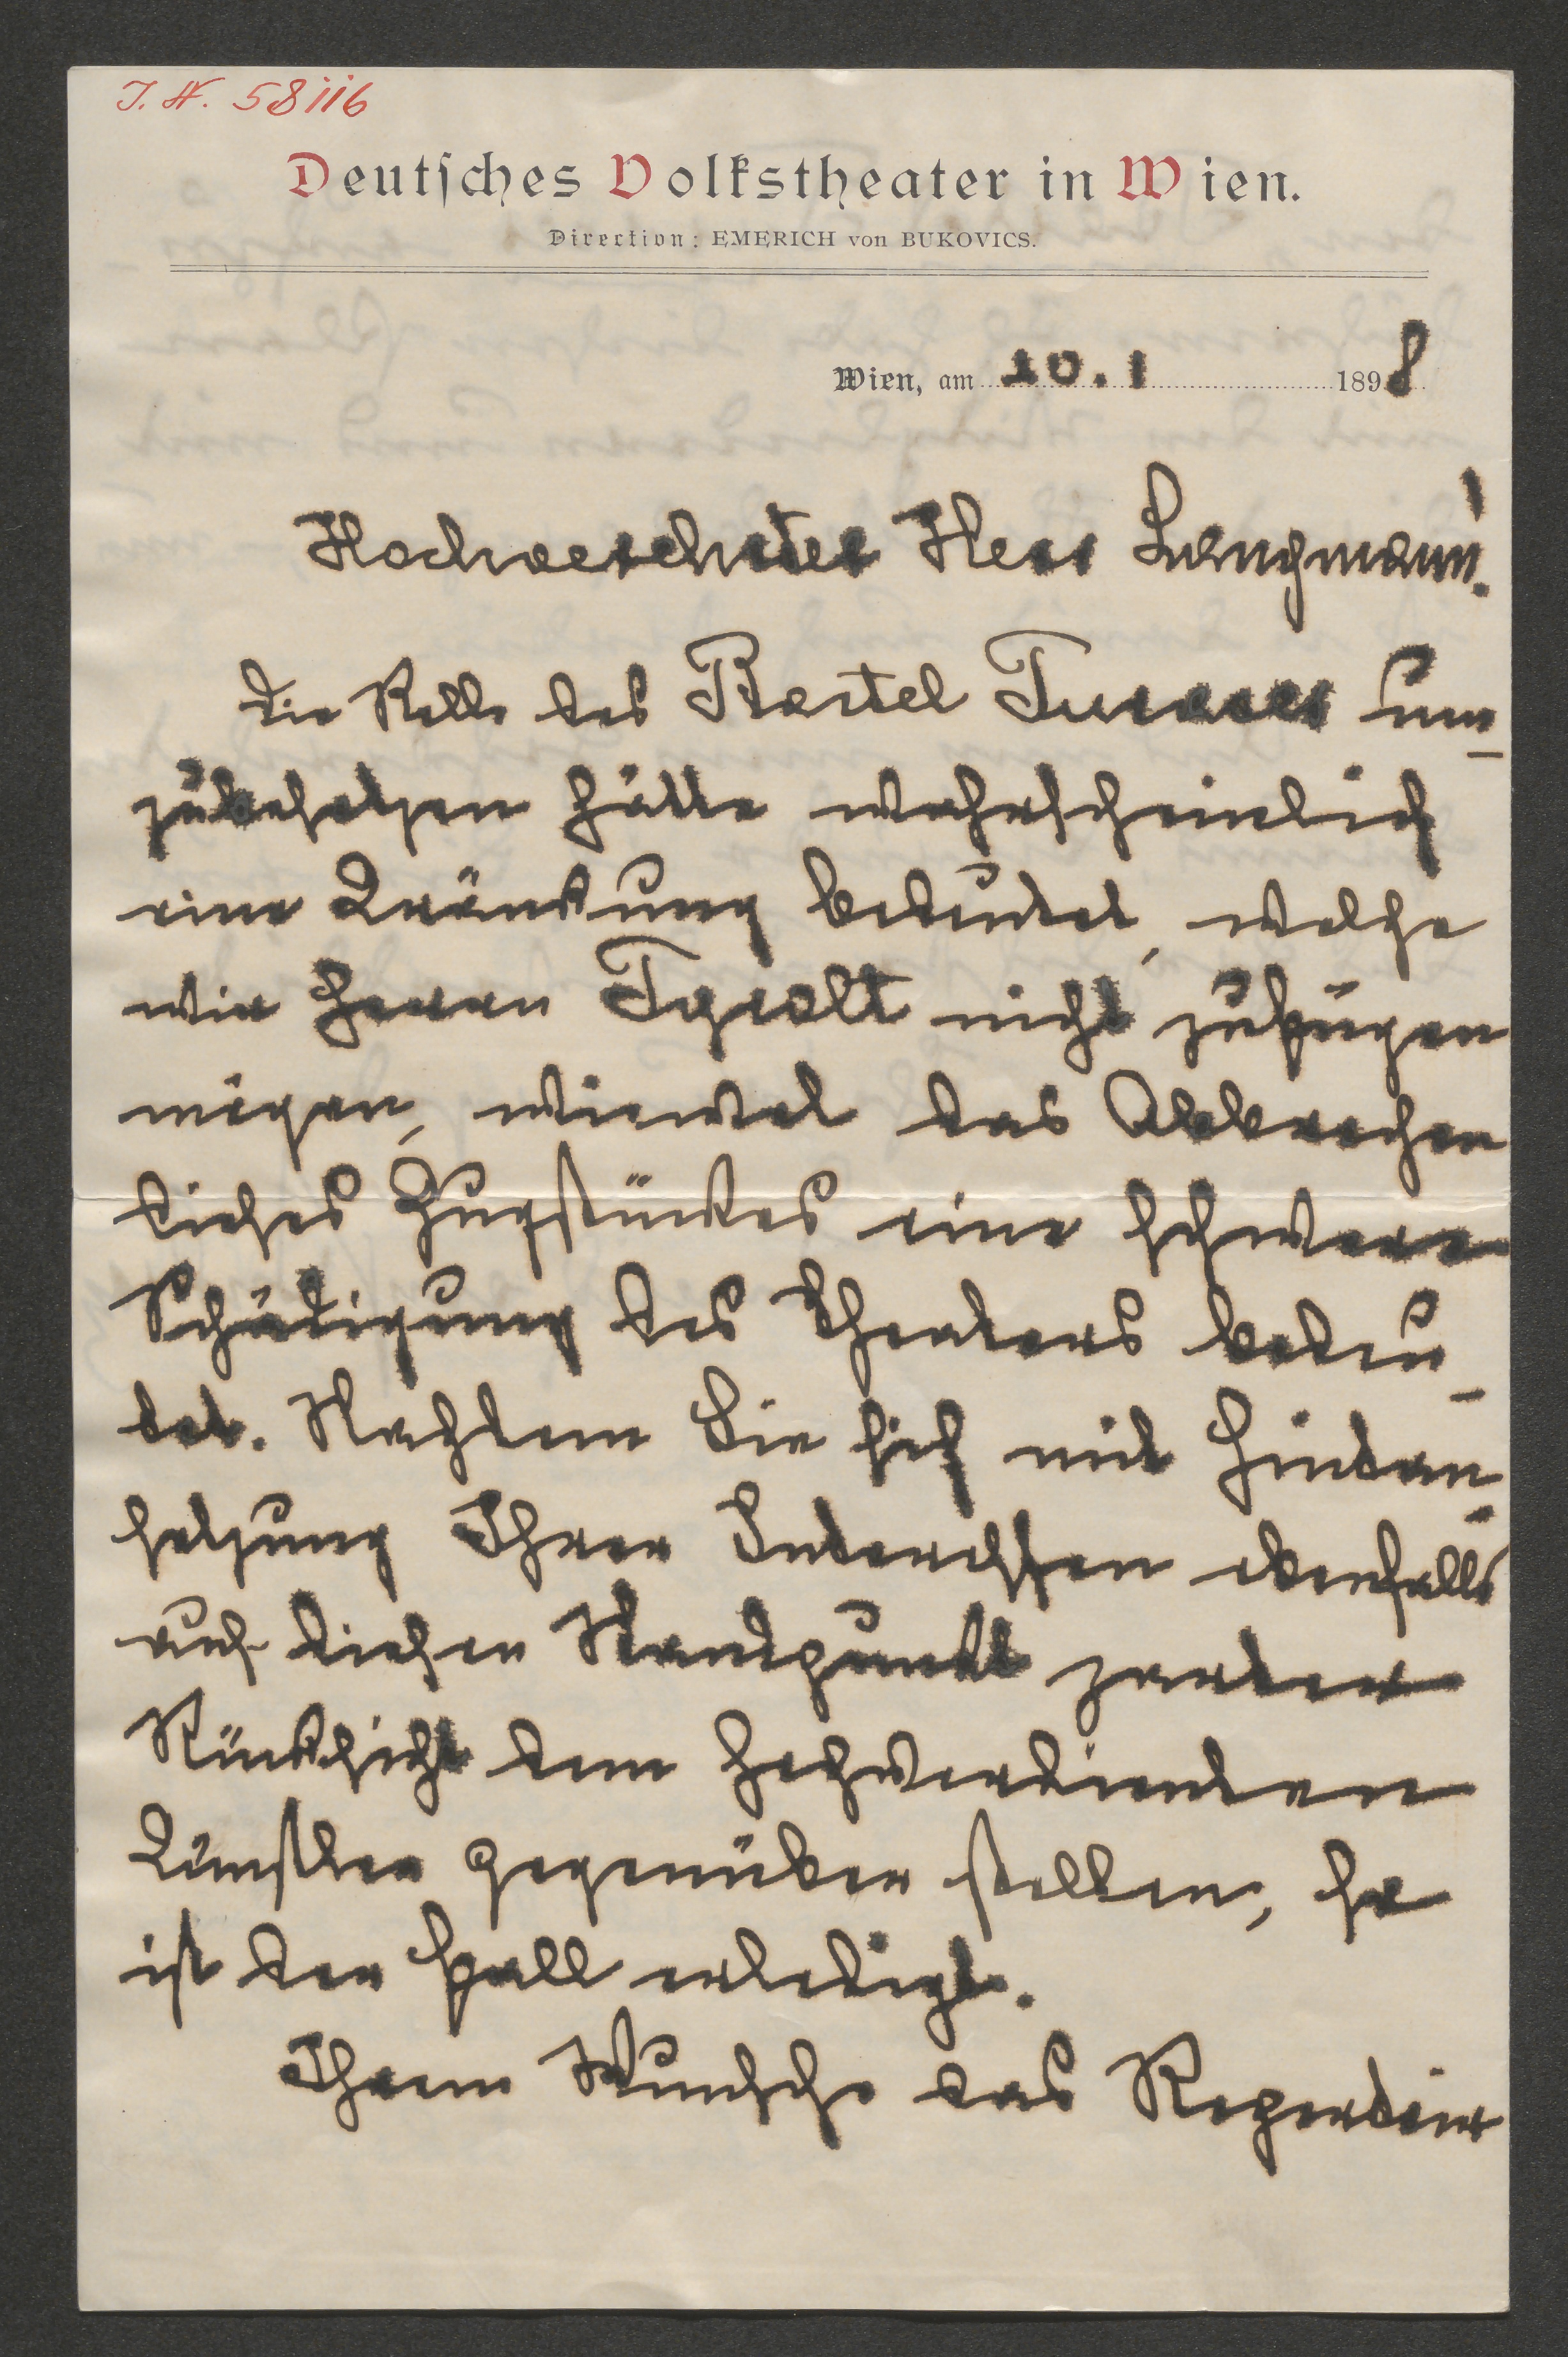 J. N. 58116
Deutsches Volkstheater in Wien.
Direction: EMERICH von BUKOVICS.
Wien, am 10. 1 1898
Hochverehrter Herr Langmann!
die Rolle des Bartel Turaser um-
zubesetzen hätte wahrscheinlich
eine Kränkung bedeutet, welche
wir Herrn Tyrolt nicht zufügen
mögen, wiewol das Abbrechen
dieses Zugstückes eine schwere
Schädigung des Theaters bedeu-
tet. Nachdem Sie sich mit Hintan-
setzung Ihrer Interessen ebenfalls
auf diesen Standpunkt zarter
Rücksicht dem hochverdienten
Künstler gegenüber stellen, so
ist der Fall erledigt.
Ihrem Wunsche das Repertoir